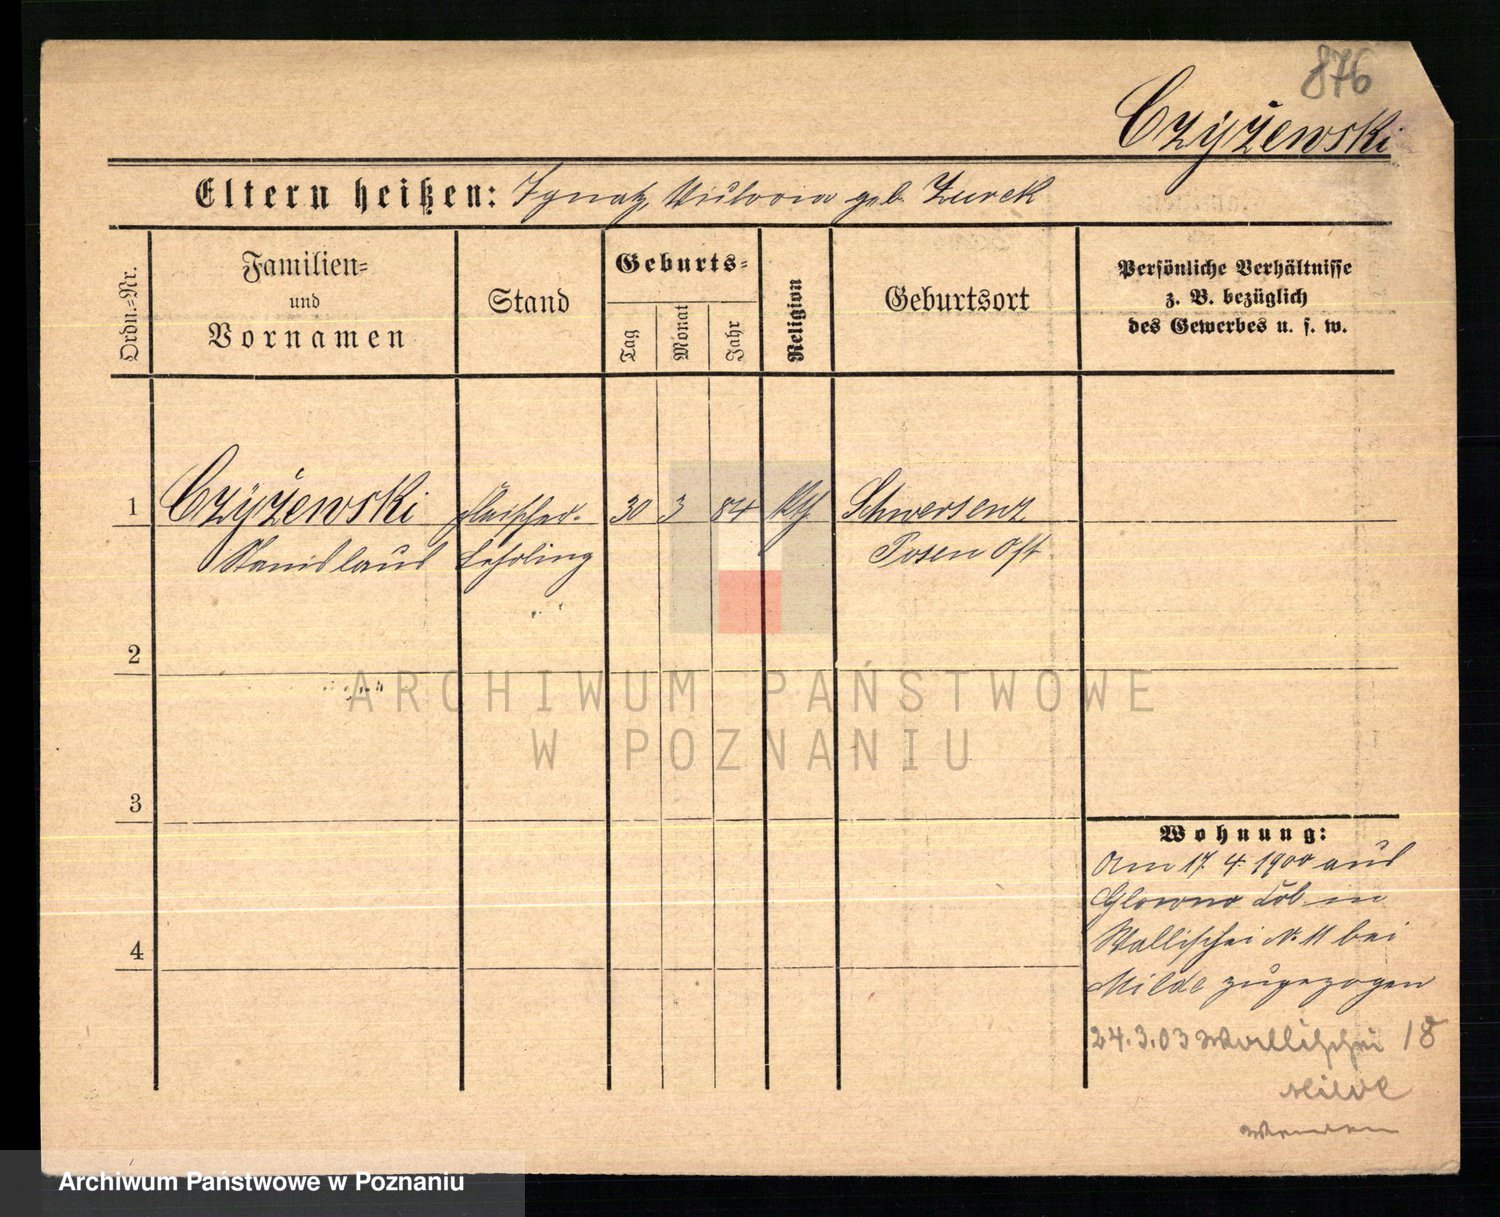 876
Czyżewski
Eltern heißen: Ignatz, Viktoria geb. Zurek
Ordn.-Nr.
Familien- und Vornamen
Stand
Geburts-
Tag
Monat
Jahr
Religion
Geburtsort
Persönliche Verhältnisse
z. B. bezüglich
des Gewerbes u. s. w.
1 Czyżewski Fleischer- 30 3 84 kth Schwersenz
Stanislaus Lehrling Posen Ost
2
3
4
Wohnung:
Am 17. 4. 1900 aus
Glowno in
Wallischei N. 11 bei
Milde zugezogen
24.3.03 Wallischei 18
Milde
ARCHIWUM PAŃSTWOWE
W POZNANIU
Archiwum Państwowe w Poznaniu